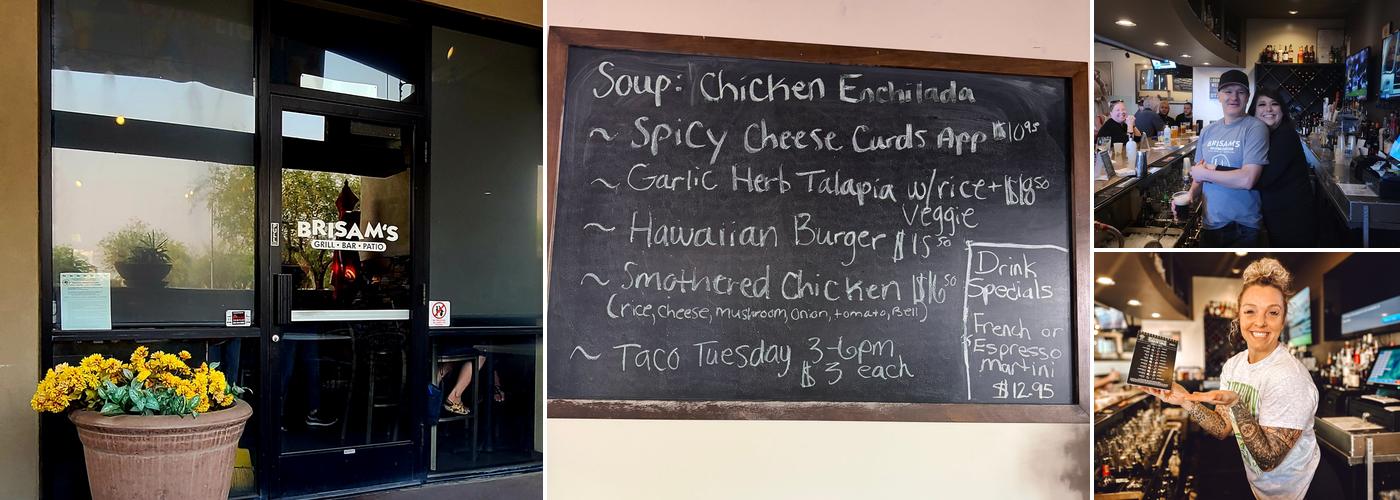 BRISAM'S
GRILL • BAR • PATIO
Soup: Chicken Enchilada
~ Spicy Cheese Curds App $10.95
~ Garlic Herb Talapia w/rice + $18.50
Veggie
~ Hawaiian Burger $15.50
~ Smothered Chicken $16.50
(rice, cheese, mushroom, onion, tomato, Bell)
~ Taco Tuesday 3-6pm
$3 each
Drink
Specials
French or
Espresso
martini
$12.95
BRISAM'S